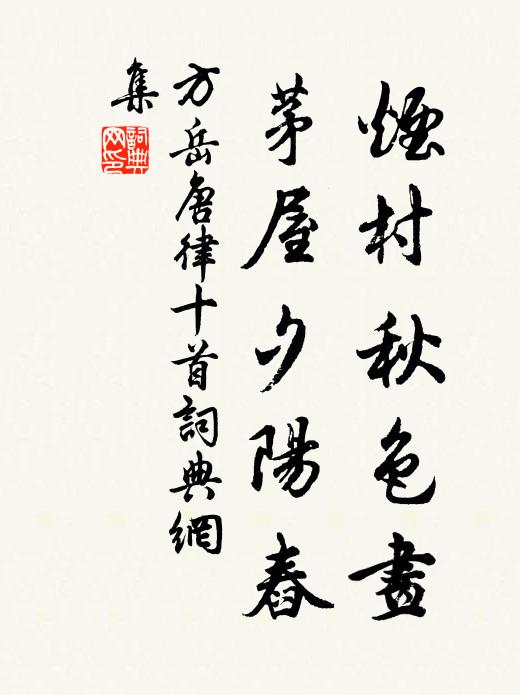 煙村秋色畫
茅屋夕陽舂
方岳唐律十首詞典網
集
詞典
网印